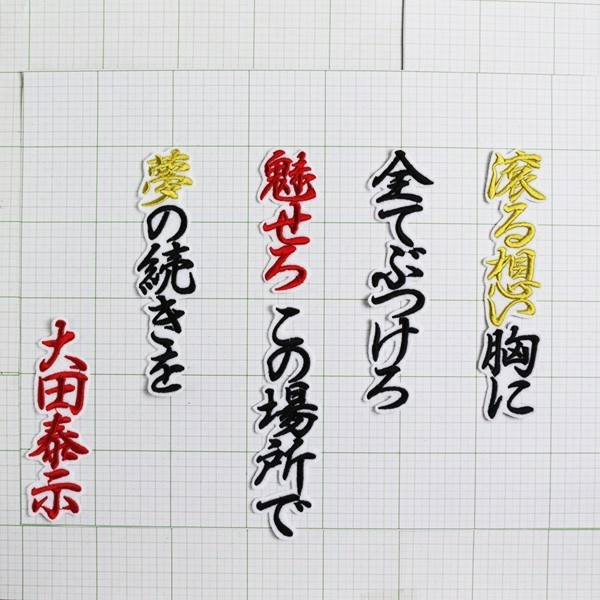 滾る想い胸に
全てぶつけろ
魅せろ この場所で
夢の続きを
大田泰示